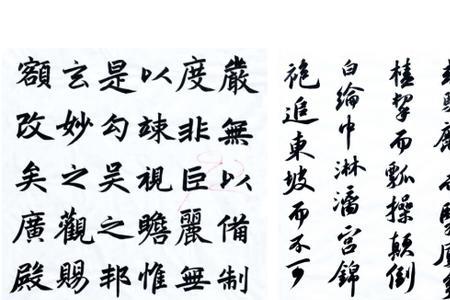 桂挈而瓢操顛倒
白綸巾淋漓宮錦
袍追東坡而不可
嚴無以備制
度非臣麗無
以竦視瞻惟
是勾吴之邦
玄妙之觀賜
額改矣廣殿